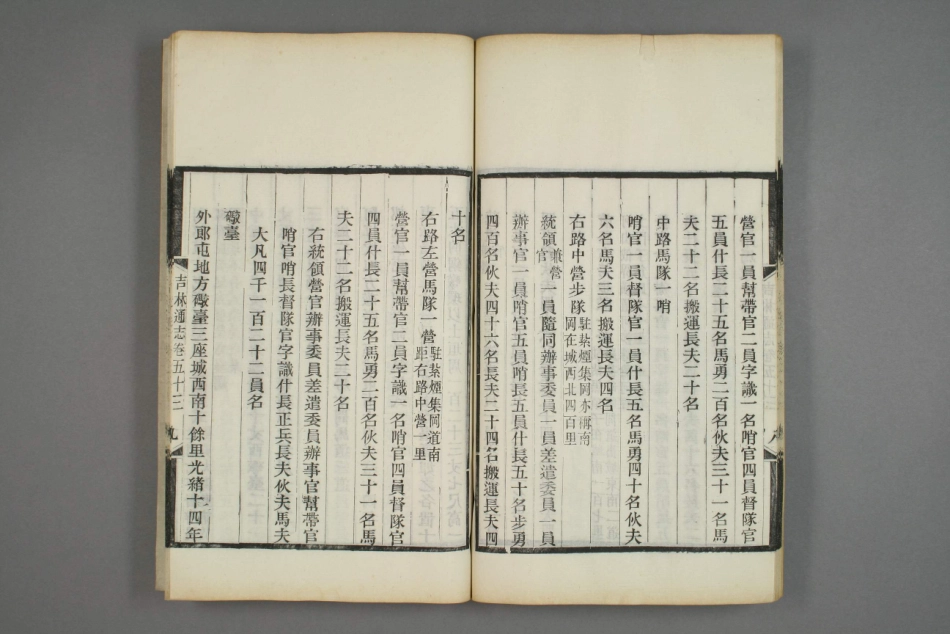 營官一員幫帶官二員字識一名哨官四員督隊官
五員什長二十五名馬勇二百名伙夫三十一名馬
夫二十二名搬運長夫二十名
中路馬隊一哨
哨官一員督隊官一員什長五名馬勇四十名伙夫
六名馬夫三名搬運長夫四名
右路中營步隊駐紮煙集岡亦稱南
岡在城西北四百里
統領兼營
官一員隨同辦事委員一員差遣委員一員
辦事官一員哨官五員哨長五員什長五十名步勇
四百名伙夫四十六名長夫二十四名搬運長夫四
十名
右路左營馬隊一營駐紮煙集岡道南
距右路中營一里
營官一員幫帶官二員字識一名哨官四員督隊官
四員什長二十五名馬勇二百名伙夫三十一名馬
夫二十二名搬運長夫二十名
右統領營官辦事委員差遣委員辦事官幫帶官
哨官哨長督隊官字識什長正兵長夫伙夫馬夫
大凡四千一百二十二員名
礮臺
外郎屯地方礮臺三座城西南十餘里光緒十四年
吉林通志卷五十三
九